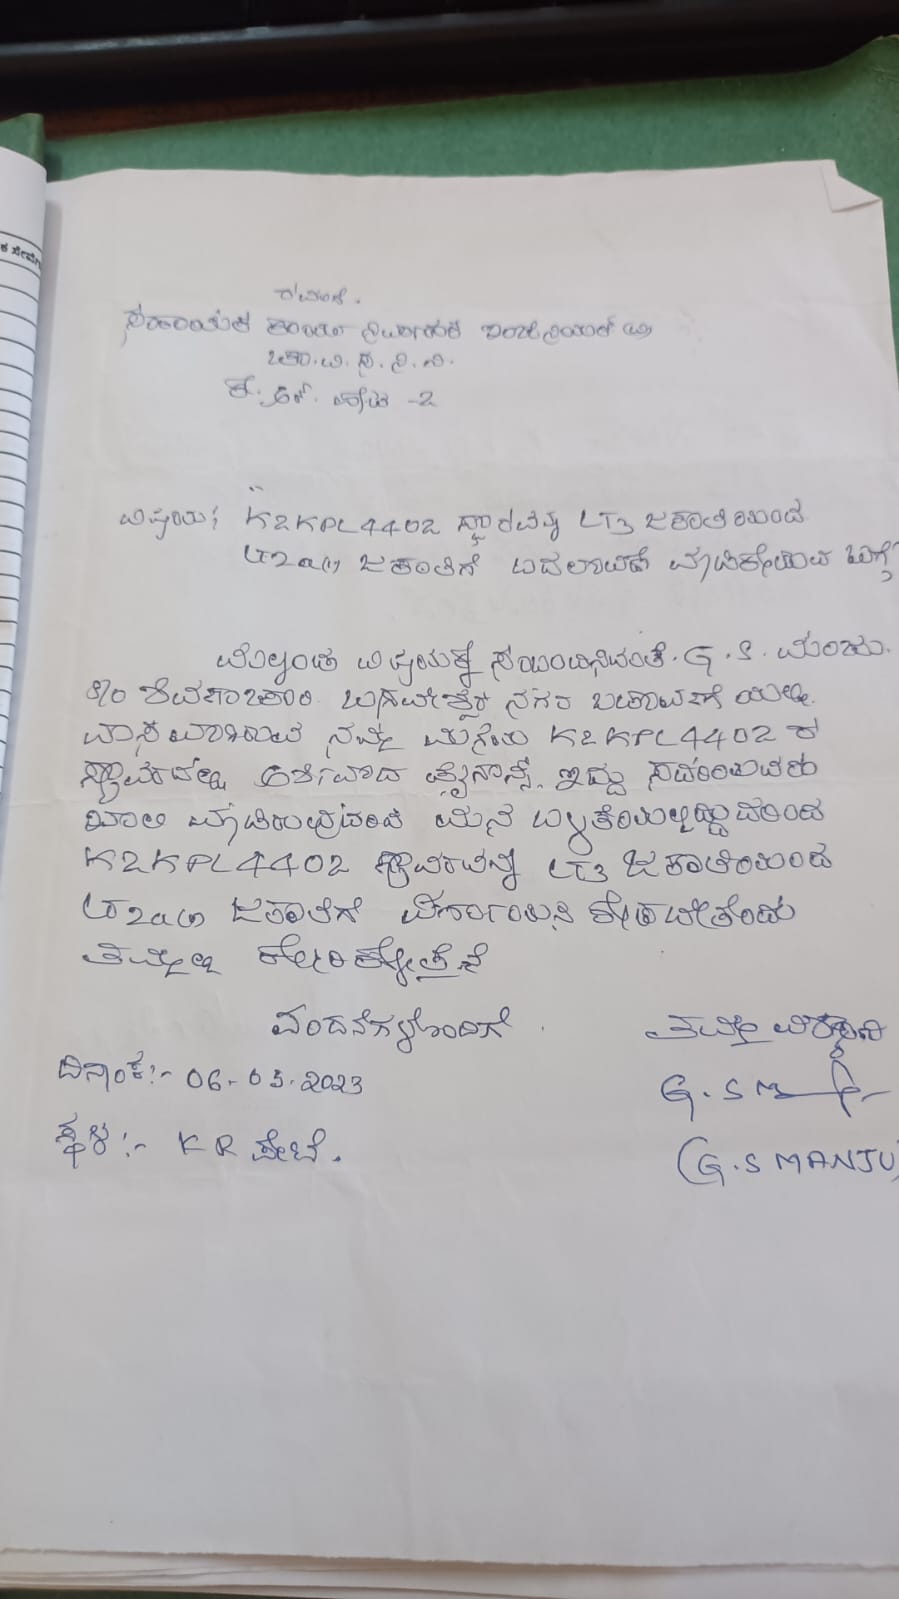 ಕ ಸೇವೆ
ರವರಿಗೆ.
ಸಹಾಯಕ ಕಾರ್ಯ ನಿರ್ವಾಹಕ ಇಂಜಿನಿಯರ್
ಚಾ.ವಿ.ಸ.ನಿ.ನಿ.
ಕೆ.ಆರ್. ಪೇಟೆ -2
ವಿಷಯ: K2KPL4402 ಸ್ಥಾವರವನ್ನು LT3 ಜಕಾತಿಯಿಂದ
LT2a(i) ಜಕಾತಿಗೆ ಬದಲಾವಣೆ ಮಾಡಿಕೊಡುವ ಬಗ್ಗೆ
ಮೇಲ್ಕಂಡ ವಿಷಯಕ್ಕೆ ಸಂಬಂಧಿಸಿದಂತೆ. G.S. ಮಂಜು.
S/o ಶಿವಣ್ಣಾಚಾರಿ ಬಸವೇಶ್ವರ ನಗರ ಬಡಾವಣೆ ಯಲ್ಲಿ
ವಾಸವಾಗಿರುವ ನಮ್ಮ ಮನೆಯ K2KPL4402 ರ
ಸ್ಥಾವರದಲ್ಲಿ ಫೈನಾನ್ಸ್ ಇದ್ದು ಸದರಿಯವರು
ಖಾಲಿ ಮಾಡಿರುವುದರಿಂದ ಮನೆ ಬಳಕೆಯಲ್ಲಿದ್ದುದರಿಂದ
K2KPL4402 ಸ್ಥಾವರವನ್ನು LT3 ಜಕಾತಿಯಿಂದ
LT2a(i) ಜಕಾತಿಗೆ ವರ್ಗಾಯಿಸಿ ಕೊಡಬೇಕೆಂದು
ತಮ್ಮಲ್ಲಿ ಕೋರಿಕೊಳ್ಳುತ್ತೇನೆ
ವಂದನೆಗಳೊಂದಿಗೆ . ತಮ್ಮ ವಿಶ್ವಾಸಿ
ದಿನಾಂಕ:- 06-03-2023 G.S M
ಸ್ಥಳ :- K R ಪೇಟೆ. (G.S MANJU)